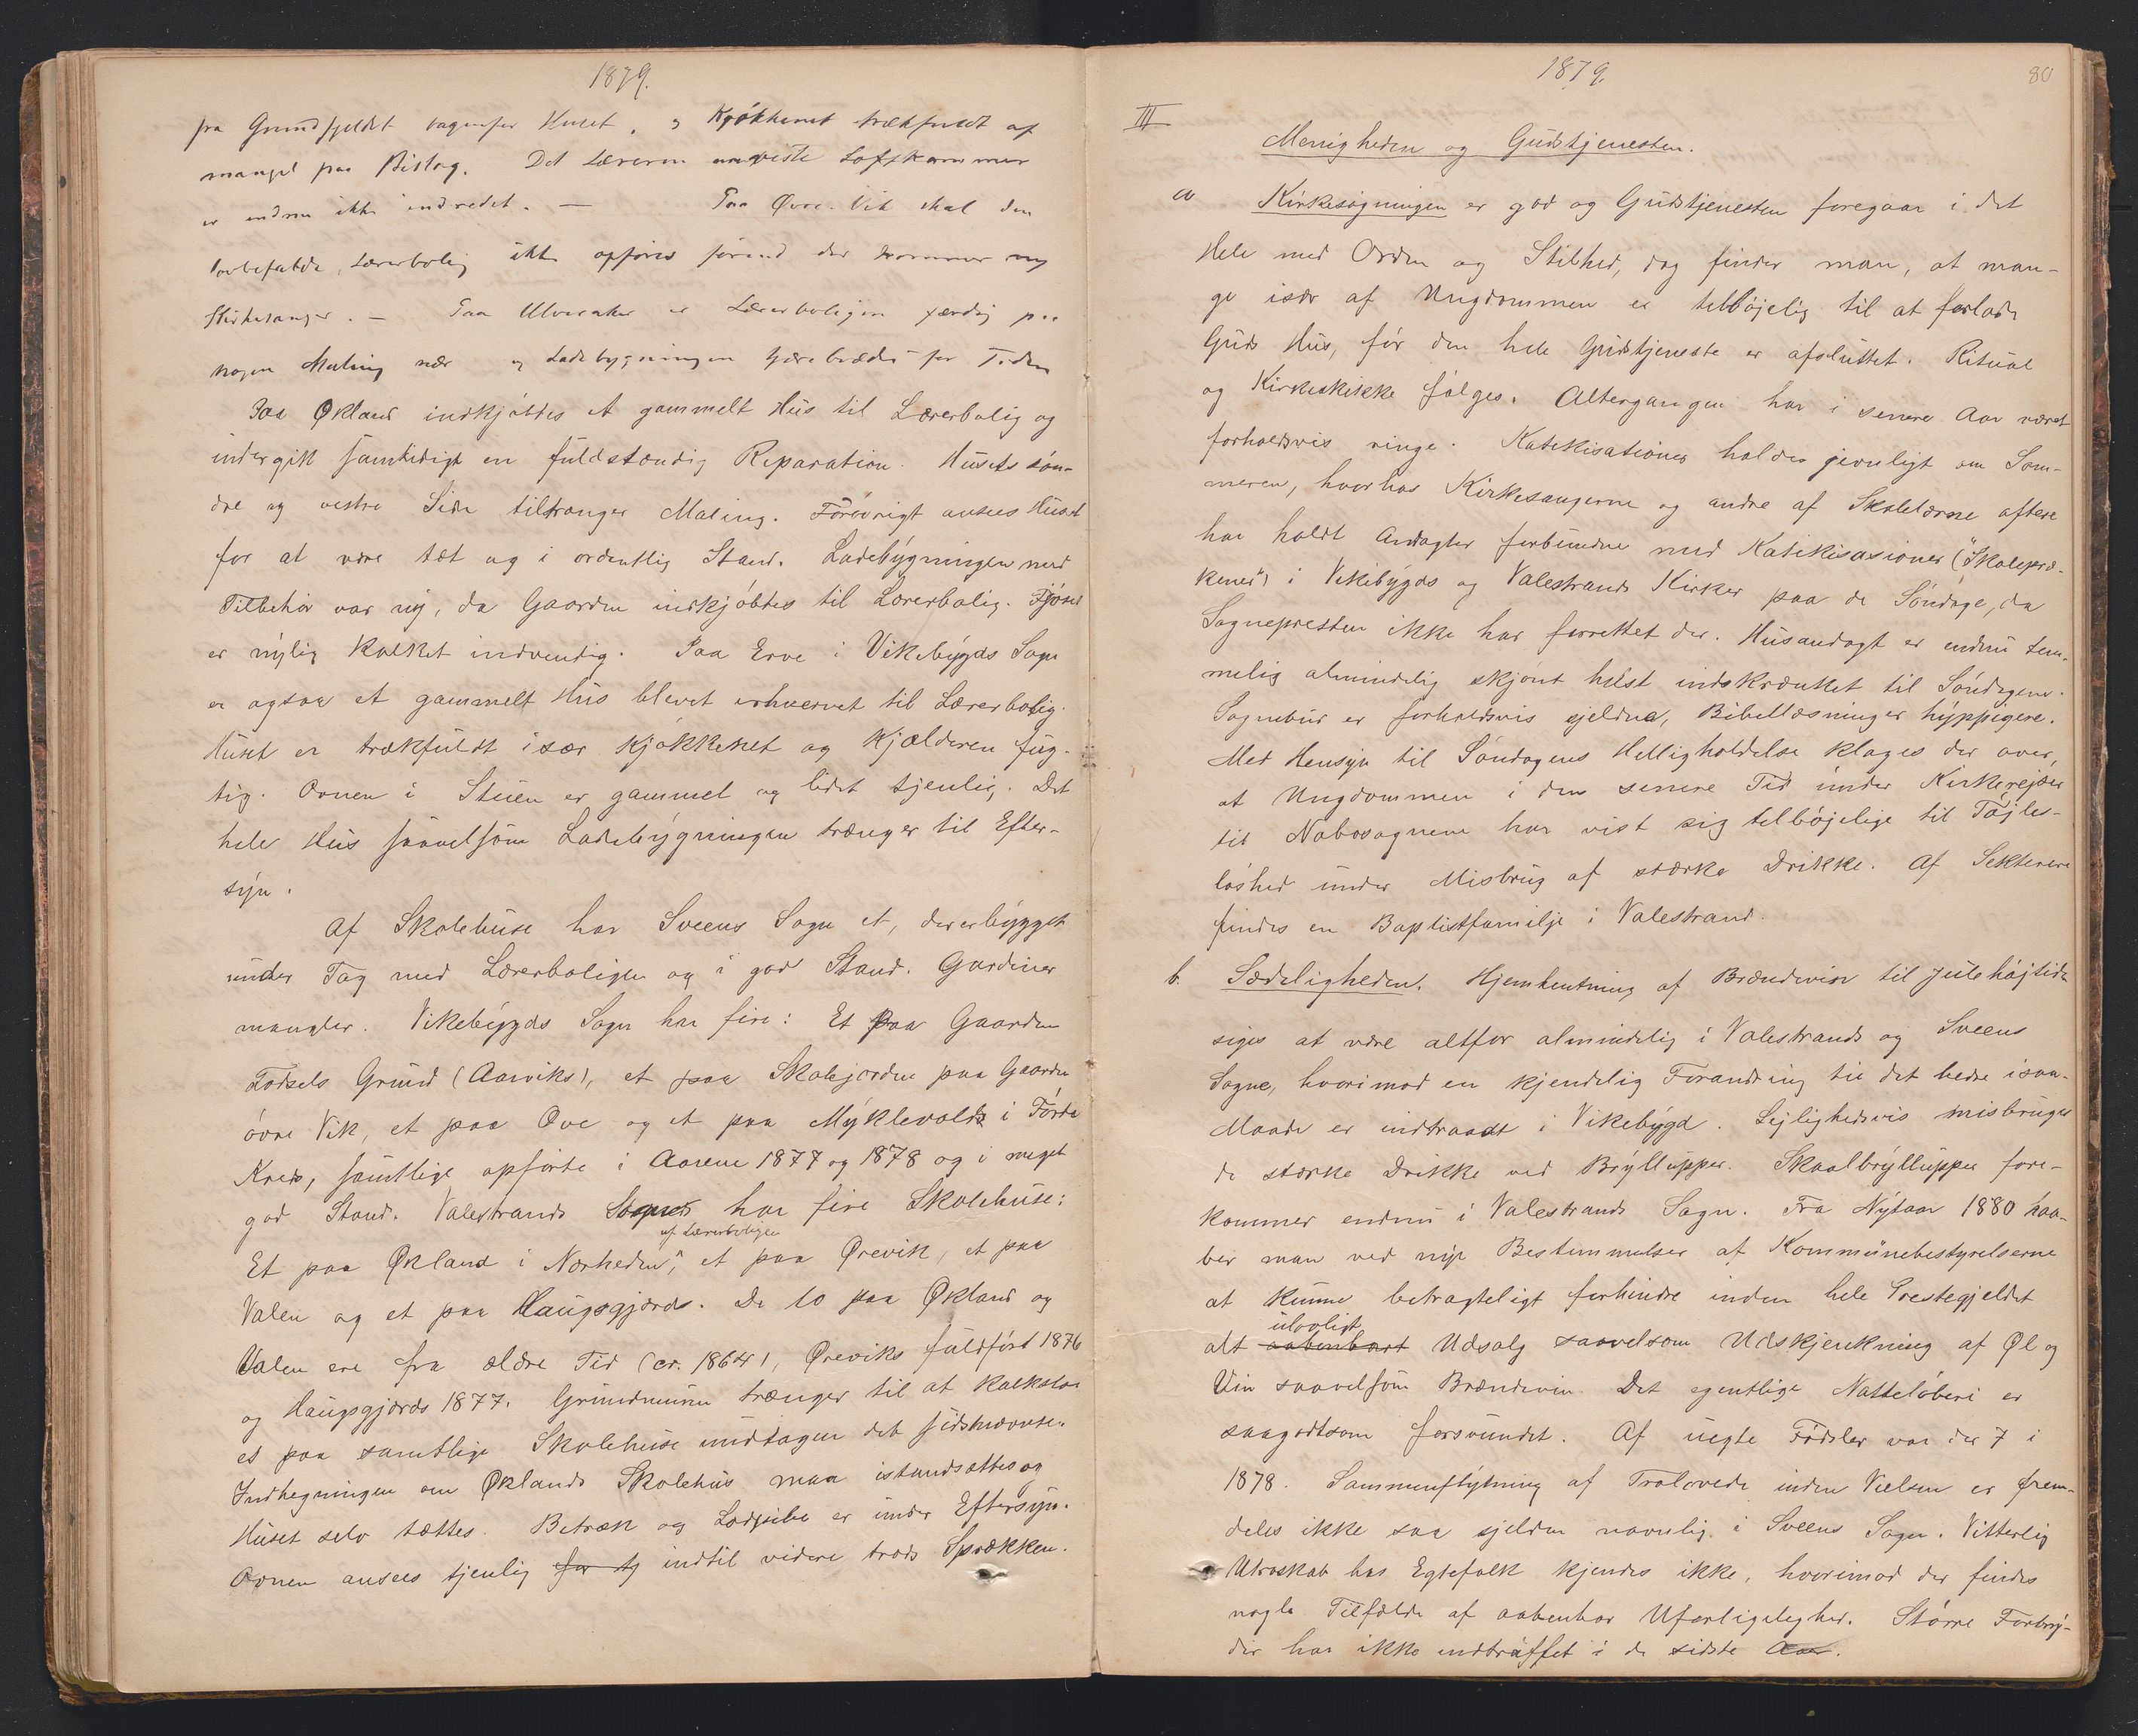 1879.
fra Grundfjeldet bagenfor Huset, og Kjøkkenet trækfuldt af
mangel paa Bislag. Det Læreren anviste Loftskammer
er endnu ikke indredet. — Paa Øvre-Vik skal den
lovbefalede Lærerbolig ikke opføres førend der kommer ny
Kirkesanger. — Paa Ulveraker er Lærerboligen færdig paa
nogen Maling nær og Ladebygningen for Tiden
Paa Økland indkjøbtes et gammelt Hus til Lærerbolig og
undergik samtidigt en fuldstændig Reparation. Husets søn-
dre og vestre Side tiltrænger Maling. Forøvrigt ansees Huset
for at være tæt og i ordentlig Stand. Ladebygningen med
Tilbehør var ny, da Gaarden indkjøbtes til Lærerbolig. Fjøset
er nylig kalket indvendig. Paa Erve i Vikebygds Sogn
er ogsaa et gammelt Hus blevet erhvervet til Lærerbolig.
Huset er trækfuldt især Kjøkkenet og Kjælderen fug-
tig. Ovnen i Stuen er gammel og lidet tjenlig. Det
hele Hus saavelsom Ladebygningen trænger til Efter-
syn.
Af Skolehuse har Sveens Sogn et, der er bygget
under Tag med Lærerboligen og i god Stand. Gardiner
mangler. Vikebygds Sogn har fire: Et paa Gaarden
Lodsels Grund (Aarviks), et paa Skolejorden paa Gaarden
øvre Vik, et paa Ove og et paa Myklevolds i Førde
Kreds, samtlige opførte i Aarene 1877 og 1878 og i meget
god Stand. Valestrands Sogn har fire Skolehuse:
af Lærerboligen
Et paa Økland i Nærheden, et paa Ørevik, et paa
Valen og et paa Haugsgjærds. De to paa Økland og
Valen ere fra ældre Tid (cr. 1864), Øreviks fuldført 1876
og Haugsgjærds 1877. Grundmuren trænger til at kalkslaa
es paa samtlige Skolehuse undtagen det sidstnævnte.
Indhegningen om Øklands Skolehus maa istandsættes og
Huset selv tættes. Betræk og er under Eftersyn.
Ovnen ansees tjenlig for indtil videre trods Sprækken.
1879.
80
III
Menigheden og Gudstjenesten.
a Kirkesøgningen er god og Gudstjenesten foregaar i det
Hele med Orden og Stilhed, dog finder man, at man-
ge især af Ungdommen er tilbøjelig til at forlade
Guds Hus, før den hele Gudstjeneste er afsluttet. Ritual
og Kirkeskikke følges. Altergangen har i senere Aar været
forholdsvis ringe. Katekisationer holdes jevnligt om Som-
meren, hvorhos Kirkesangerne og andre af Skolelærerne oftere
har holdt Andagter forbundne med Katekisasioner ("Skolepræ-
kener") i Vikebygds og Valestrands Kirker paa de Søndage, da
Sognepresten ikke har forrettet der. Husandagt er endnu tem-
melig almindelig skjønt helst indskrænket til Søndagene.
Sognebud er forholdsvis sjeldne, Bibellæsninger hyppigere.
Med Hensyn til Søndagens Helligholdelse klages der over,
at Ungdommen i den senere Tid under Kirkerejser
til Nabosognene har vist sig tilbøjelige til Tøjles-
løshed under Misbrug af stærke Drikke. Af Sekterere
findes en Baptistfamilje i Valestrand.
b. Sædeligheden. Hjemhentning af Brændevin til Julehøjtiden
siges at være altfor almindelig i Valestrands og Sveens
Sogne, hvorimod en kjendelig Forandring til det bedre i saa-
Maade er indtraadt i Vikebygd. Lejlighedsvis misbruges
de stærke Drikke ved Bryllupper. Skaalbryllupper fore-
kommer endnu i Valestrands Sogn. Fra Nytaar 1880 haa-
ber man ved nye Bestemmelser af Kommunebestyrelserne
at kunne betragteligt forhindre inden hele Prestegjeldet
ulovligt
alt aabenbart Udsalg saavelsom Udskjenkning af Øl og
Vin saavelsom Brændevin. Det egentlige Natteløberi er
saagodtsom forsvundet. Af uegte Fødsler var der 7 i
1878. Sammenflytning af Trolovede inden Vielsen er frem-
deles ikke saa sjelden navnlig i Sveens Sogn. Vitterlig
Utroskab hos Egtefolk kjendes ikke, hvorimod der findes
nogle Tilfælde af aabenbar Uforligelighed. Større Forbry-
der har ikke indtruffet i de sidste Aar.